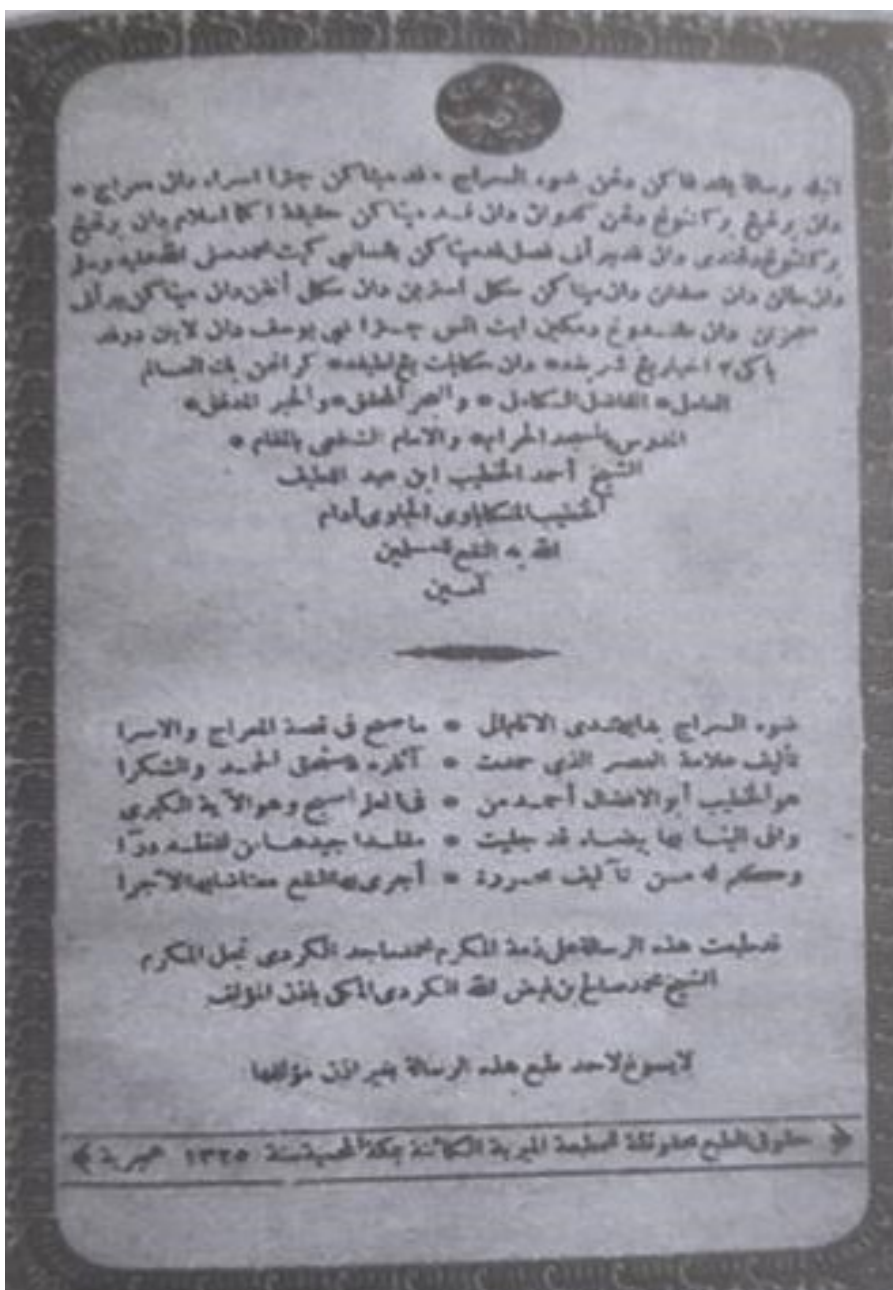 اينله رسالة يڠ دنماكن دڠن ضوء السراج * ڤد مپتاكن چترا اسراء دان معراج *
دان يڠ دان ڤد مپتاكن حقيقة اݢام اسلام دان يڠ
دان فصل ڤد مپتاكن كيت محمد صلى الله عليه وسلم
دان دان دان مپتاكن سكل استرين دان سكل دان مپتاكن
معجزتن دان دمكين ايت چترا نبي يوسف دان لاين درڤد
اخبار يڠ شريفه * دان حكايات يڠ لطيفه * كراڠن العالم
العامل * الفاضل الكامل * والبحر المحقق * والحبر المدقق *
المدرس بالمسجد الحرام * والامام الشافعي بالمقام *
الشيخ أحمد الخطيب ابن عبد اللطيف
الخطيب المنكاباوى الجاوى أدام
الله به النفع للمسلمين
آمين
ضوء السراج به يهتدى * ما صح فى قصة المعراج والاسرا
تأليف علامة العصر الذي جمعت * آثاره الحمد والشكرا
هو الخطيب أبو الافضال أحمد من * فى العلم اصبح وهو الآية الكبرى
وافى الينا بها بيضاء قد جليت * مقلدا جيدها من لفظه درّا
وكم له من تآليف محررة * أجرى بها النفع الاجرا
قد طبعت هذه الرسالة على ذمة المكرم محمد ماجد الكردى نجل المكرم
الشيخ محمد صالح بن فيض الله الكردى المكى باذن المؤلف
لا يسوغ لاحد طبع هذه الرسالة بغير اذن مؤلفها
﴿ حقوق الطبع محفوظة للمطبعة الميرية الكائنة بمكة المحمية سنة ١٣٢٥ هجرية ﴾